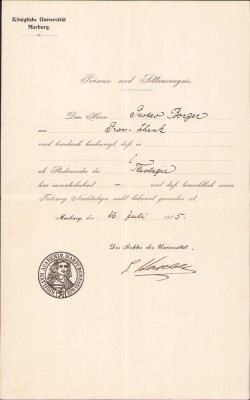 Königliche Universität
Marburg.
Präsenz- und Sittenzeugnis.
Dem Herrn Gustav Borger
aus Gross-
wird hierdurch bescheinigt, daß er
als Studierender der Theologie
hier immatrikuliert – und daß hinsichtlich seiner
Führung Nachteiliges nicht bekannt geworden ist.
Marburg, den 26 Juli 1915.
Der Rektor der Universität.